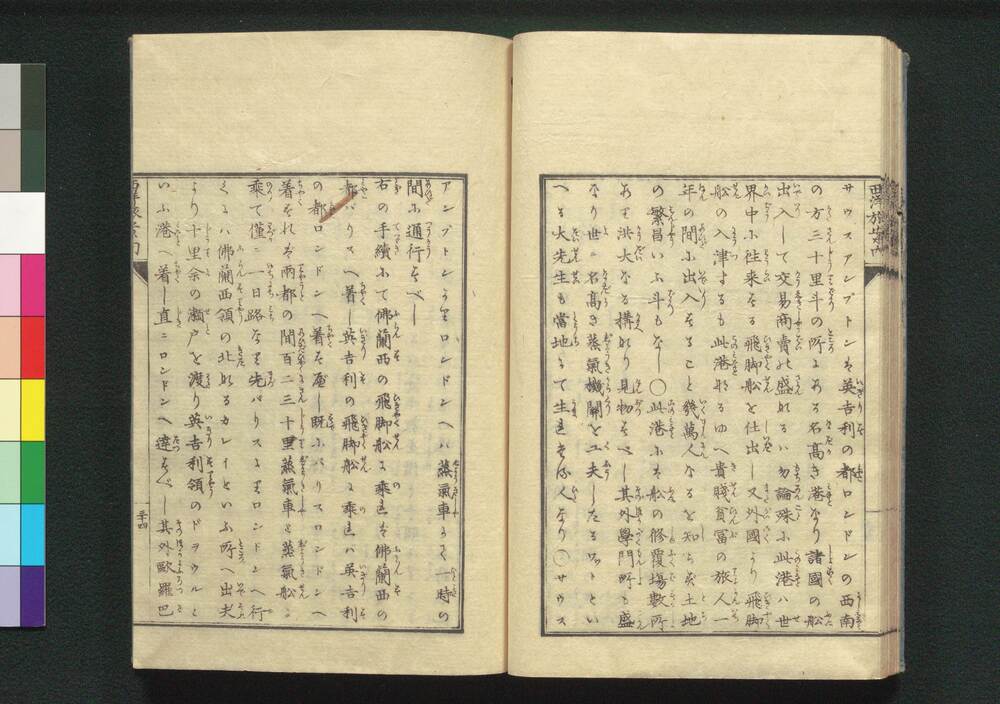 サウスアンプトンは英吉利の都ロンドンの西南
の方三十里斗の所にある名高き港なり諸國の舩
出入して交易商賣の盛なるハ勿論殊に此港ハ世
界中に往來する飛脚舩を仕出し又外國より飛脚
舩の入津するも此港なるゆへ貴賤貧冨の旅人一
年の間に出入すること幾萬人なるを知らず土地
の繁昌いふ斗もなし〇此港にハ舩の修覆場數所
あり洪大なる構なり見物すべし其外學問所も盛
なり世に名高き蒸氣機關を工夫したるワットとい
へる大先生も當地にて生れたる人なり〇サウス
アンプトンよりロンドンへハ蒸氣車にて一時の
間に通行すべし
右の手續にて佛蘭西の飛脚舩に乘れバ佛蘭西の
都パリスへ着し英吉利の飛脚舩に乘れハ英吉利
の都ロンドンへ着すべし既にパリスロンドンへ
着すれバ兩都の間百二三十里蒸氣車と蒸氣舩に
乘て僅に一日路なり先パリスよりロンドンへ行
くにハ佛蘭西領の北なるカレイといふ所へ出夫
より十里余の瀬戸を渡り英吉利領のドヲウルと
いふ港へ着し直ニロンドンへ達すべし其外歐羅巴
西洋旅案内
三十四